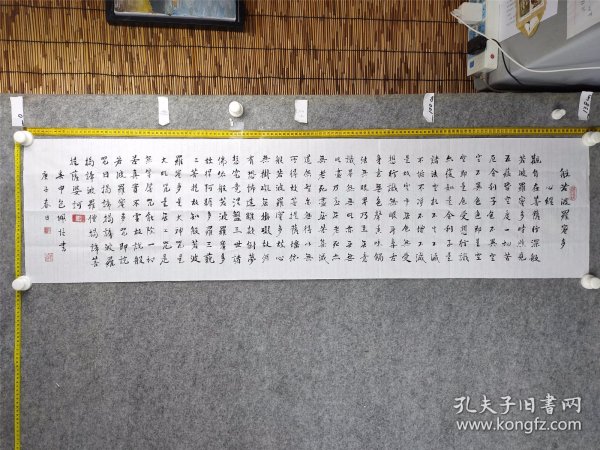 般若波羅蜜多
心經
觀自在菩薩行深般
若波羅蜜多時照見
五蘊皆空度一切苦
厄舍利子色不異空
空不異色色即是空
空即是色受想行識
亦復如是舍利子是
諸法空相不生不滅
不垢不淨不增不減
是故空中無色無受
想行識無眼耳鼻舌
身意無色聲香味觸
法無眼界乃至無意
識界無無明亦無無
明盡乃至無老死亦
無老死盡無苦集滅
道無智亦無得以無
所得故菩提薩埵依
般若波羅蜜多故心
無掛礙無掛礙故無
有恐怖遠離顛倒夢
想究竟涅盤三世諸
佛依般若波羅蜜多
故得阿耨多羅三藐
三菩提故知般若波
羅蜜多是大神咒是
大明咒是無上咒是
無等等咒能除一切
苦真實不虛故說般
若波羅蜜多咒即說
咒曰揭諦揭諦波羅
揭諦波羅僧揭諦菩
提薩婆訶
庚子春日
孔夫子旧书网
www.kongfz.com